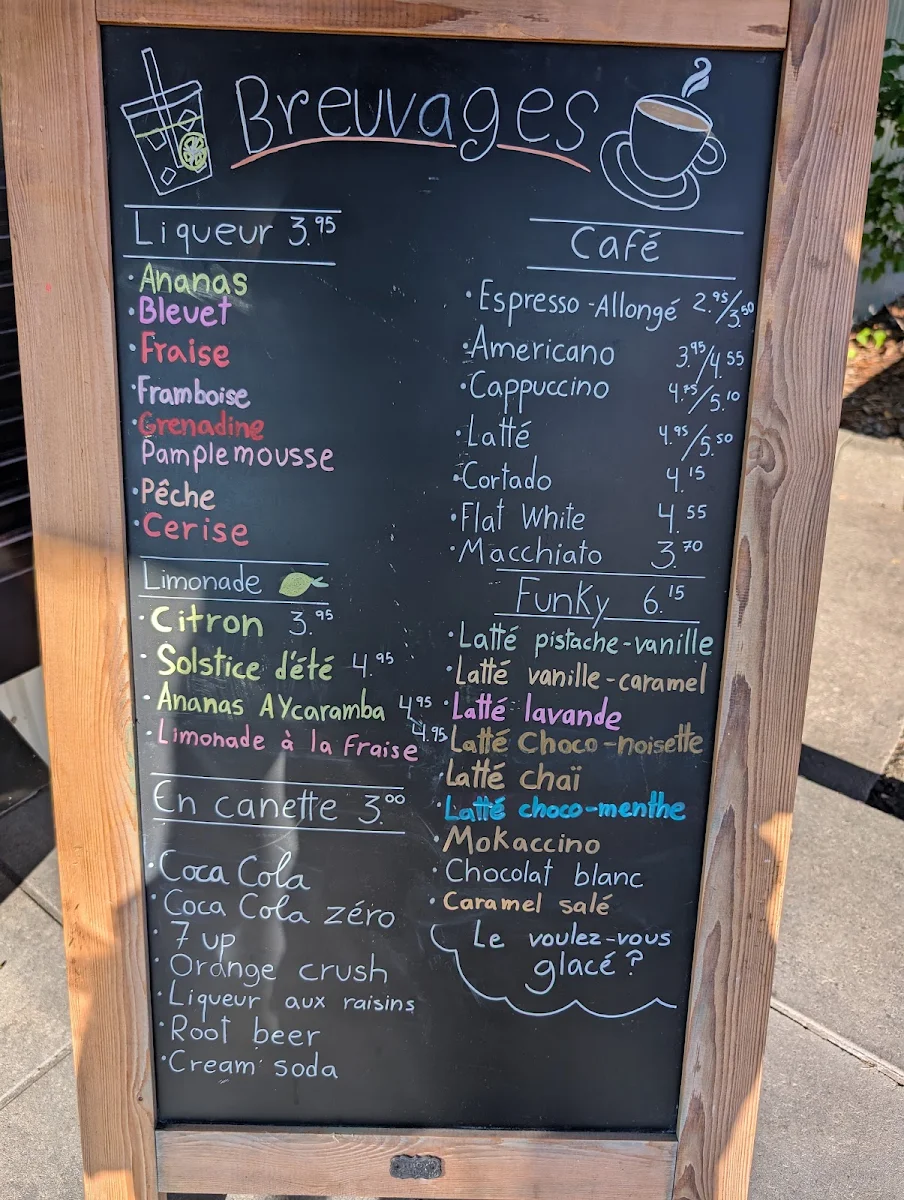 Breuvages
Liqueur 3.95
• Ananas
• Bleuet
• Fraise
• Framboise
• Grenadine
Pamplemousse
• Pêche
• Cerise
Limonade
• Citron 3.95
• Solstice d'été 4.95
• Ananas AYcaramba 4.95
• Limonade à la Fraise 4.95
En canette 3.00
• Coca Cola
• Coca Cola zéro
• 7 up
• Orange crush
• Liqueur aux raisins
• Root beer
• Cream soda
Café
• Espresso - Allongé 2.95/3.50
• Americano 3.95/4.55
• Cappuccino /5.10
• Latté 4.95/5.50
• Cortado 4.15
• Flat White 4.55
• Macchiato 3.70
Funky 6.15
• Latté pistache-vanille
• Latté vanille-caramel
• Latté lavande
Latté Choco-noisette
• Latté chaï
• Latté choco-menthe
• Mokaccino
• Chocolat blanc
• Caramel salé
Le voulez-vous
glacé ?